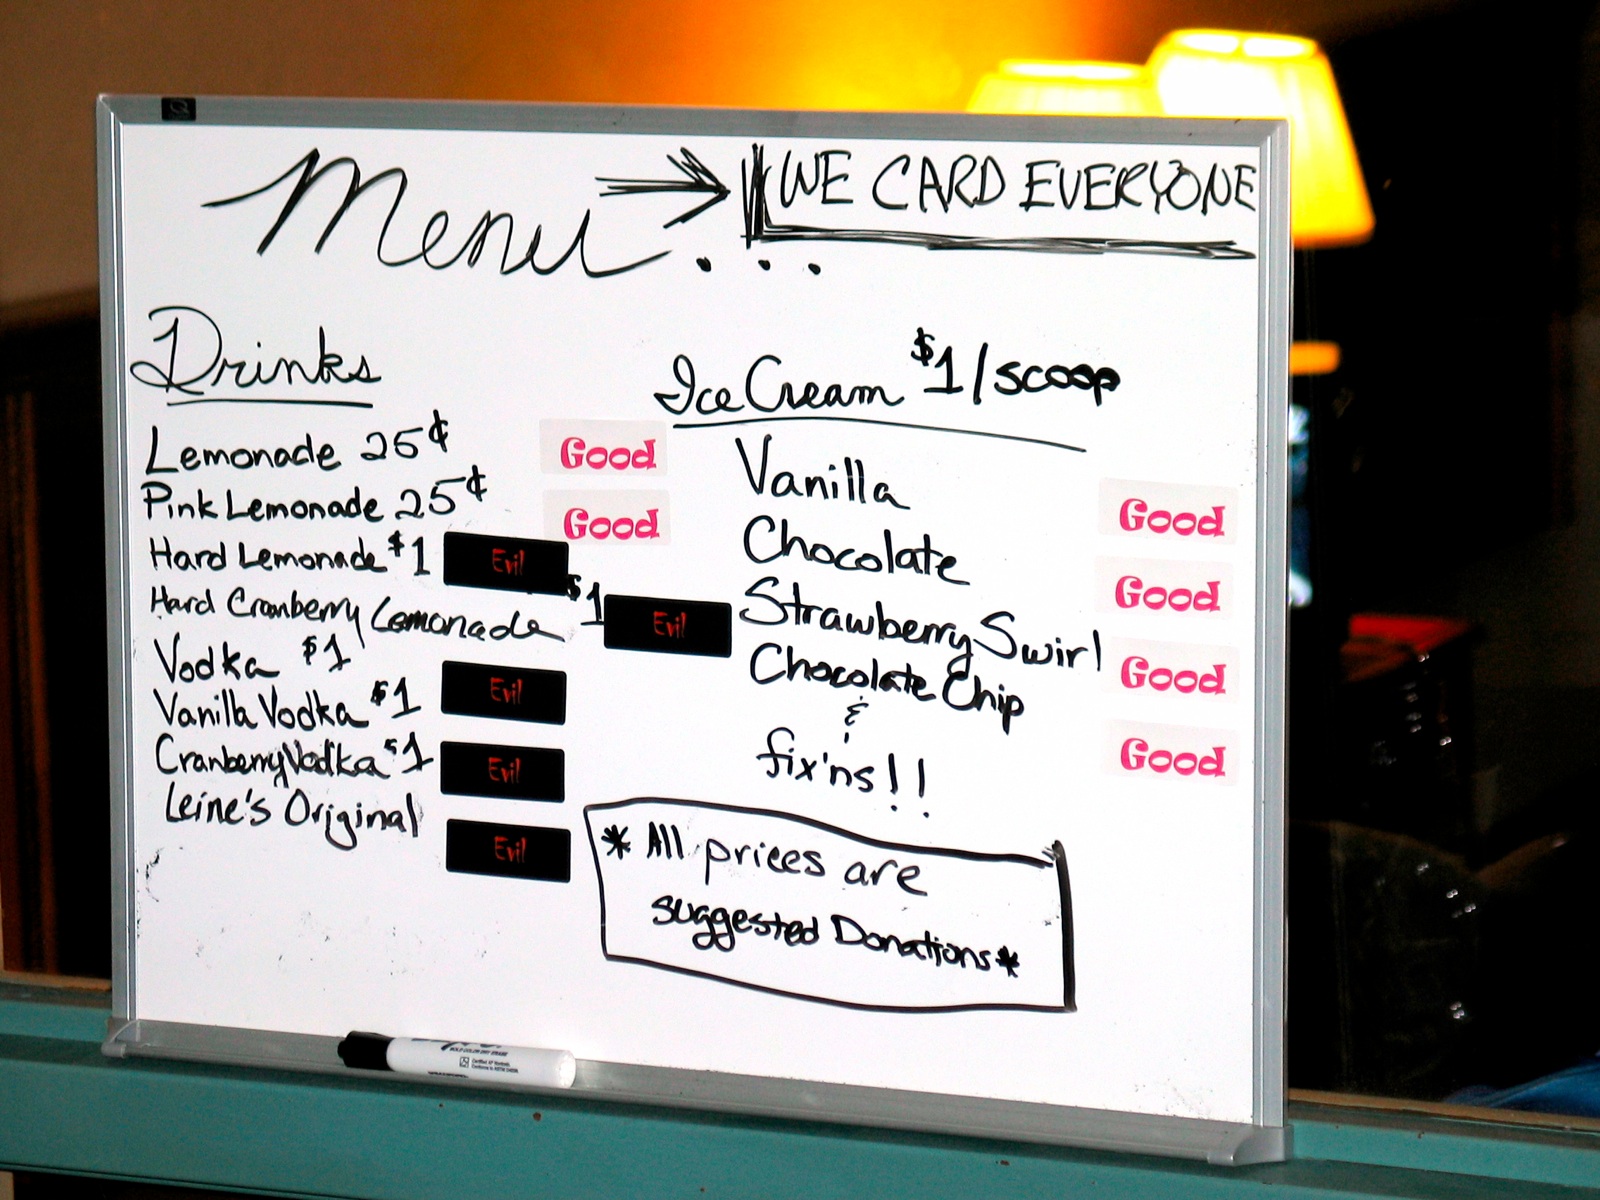 Menu...
→ WE CARD EVERYONE
Drinks
Lemonade 25¢ Good
Pink Lemonade 25¢ Good
Hard Lemonade $1 Evil
Hard Cranberry Lemonade $1 Evil
Vodka $1 Evil
Vanilla Vodka $1 Evil
Cranberry Vodka $1 Evil
Leine's Original
Ice Cream $1/scoop
Vanilla Good
Chocolate Good
Strawberry Swirl Good
Chocolate Chip Good
&
fix'ns!!
* All prices are
suggested Donations *